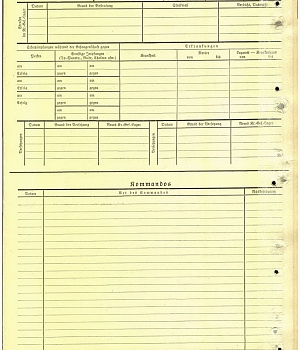 Datum
Grund der Bestrafung
Strafmaß
Verbüßt, Datum
Schutzimpfungen während der Gefangenschaft gegen
Erkrankungen
Pocken
Sonstige Impfungen
(Ty-Phantes, Ruhr, Cholera usw.)
Krankheit
Revier
von bis
Lazarett – Krankenhaus
von bis
am am gegen
Erfolg am gegen
am am gegen
Erfolg am gegen
am am gegen
Erfolg am gegen
Datum
Grund der Versetzung
Neues Kr.-Gef.-Lager
Datum
Grund der Versetzung
Neues Kr.-Gef.-Lager
Versetzungen
Versetzungen
Kommandos
Datum
Art des Kommandos
Rückkehrdatum